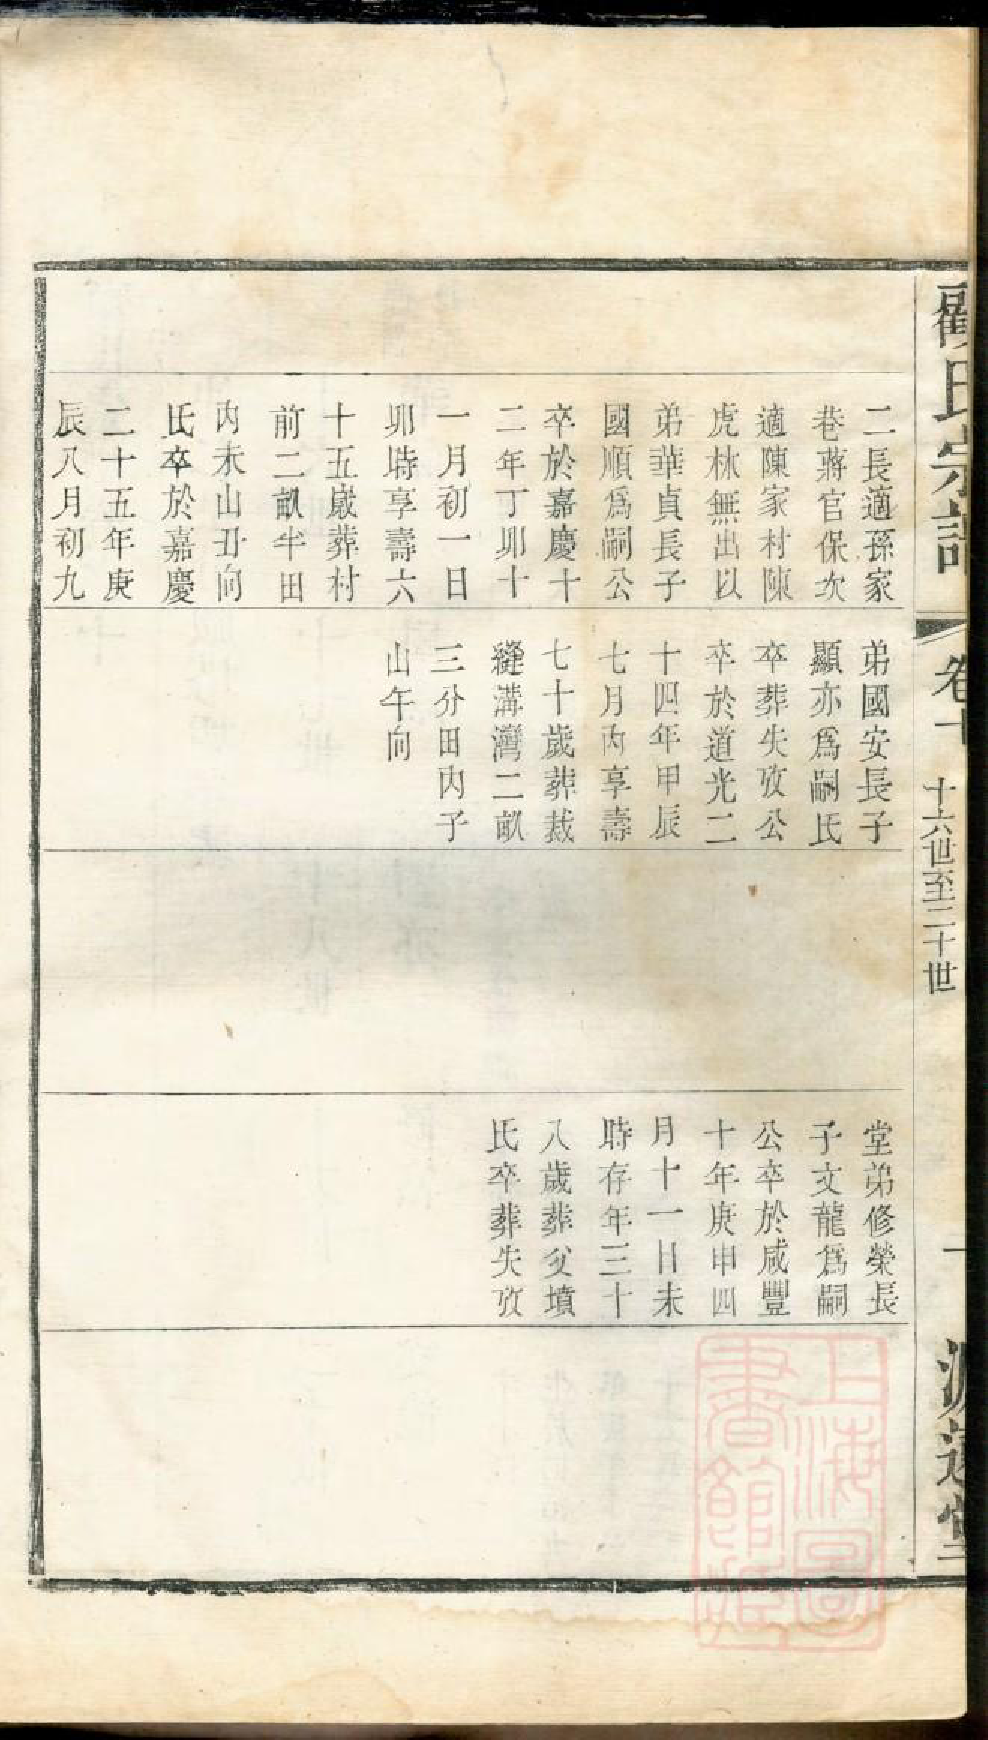 顧氏宗譜
卷十
十六世至二十世
一
源遠堂
二長適孫家
巷蔣官保次
適陳家村陳
虎林無出以
弟華貞長子
國順爲嗣公
卒於嘉慶十
二年丁卯十
一月初一日
卯時享壽六
十五歲葬村
前二畝半田
内未山丑向
氏卒於嘉慶
二十五年庚
辰八月初九
弟國安長子
顯亦爲嗣氏
卒葬失攷公
卒於道光二
十四年甲辰
七月内享壽
七十歲葬裁
縫溝灣二畝
三分田内子
山午向
堂弟修榮長
子文龍爲嗣
公卒於咸豐
十年庚申四
月十一日未
時存年三十
八歲葬父墳
氏卒葬失攷
上海圖
書館藏